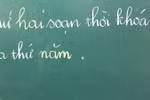 hai soạn thời khoá
thứ năm.